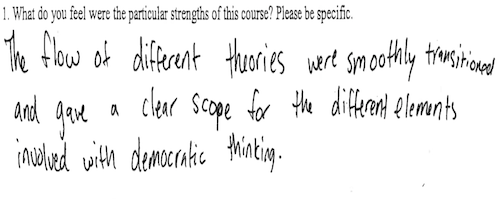 1. What do you feel were the particular strengths of this course? Please be specific.
The flow of different theories were smoothly transitioned
and gave a clear scope for the different elements
involved with democratic thinking.